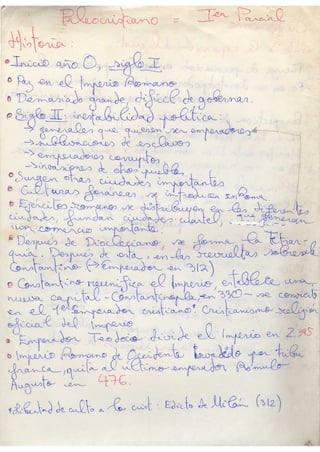 Paleocristiano = 1er Parcial
Historia:
• Inicio año 0, siglo I
• Paz en el Imperio Romano
• Demasiado grande, difícil de gobernar.
• Siglo II: inestabilidad política:
→ generales que quieren ser emperadores
→ sublevaciones de esclavos
→ emperadores corruptos
→ invasiones de otros pueblos
• Surgen otras ciudades importantes
• Culturas foráneas se introducen en Roma
• Ejércitos romanos se distribuyen en las diferentes
ciudades, fundan ciudades-cuartel, que generan
un comercio importante.
• Después de Diocleciano, se forma la Tetrar-
quía. Después de esta, en las revueltas sobresale
Constantino (→ Emperador en 312)
• Constantino reunifica el Imperio, establece una
nueva capital - Constantinopla, en 330 - se convierte
en el 1er emperador cristiano. Cristianismo = religión
oficial del Imperio
• Emperador Teodosio divide el Imperio en 2. 395
• Imperio Romano de Occidente invadido por tribu
franca, quita al último emperador Rómulo
Augusto en 476.
* Libertad de culto a los crist: Edicto de Milán (312)